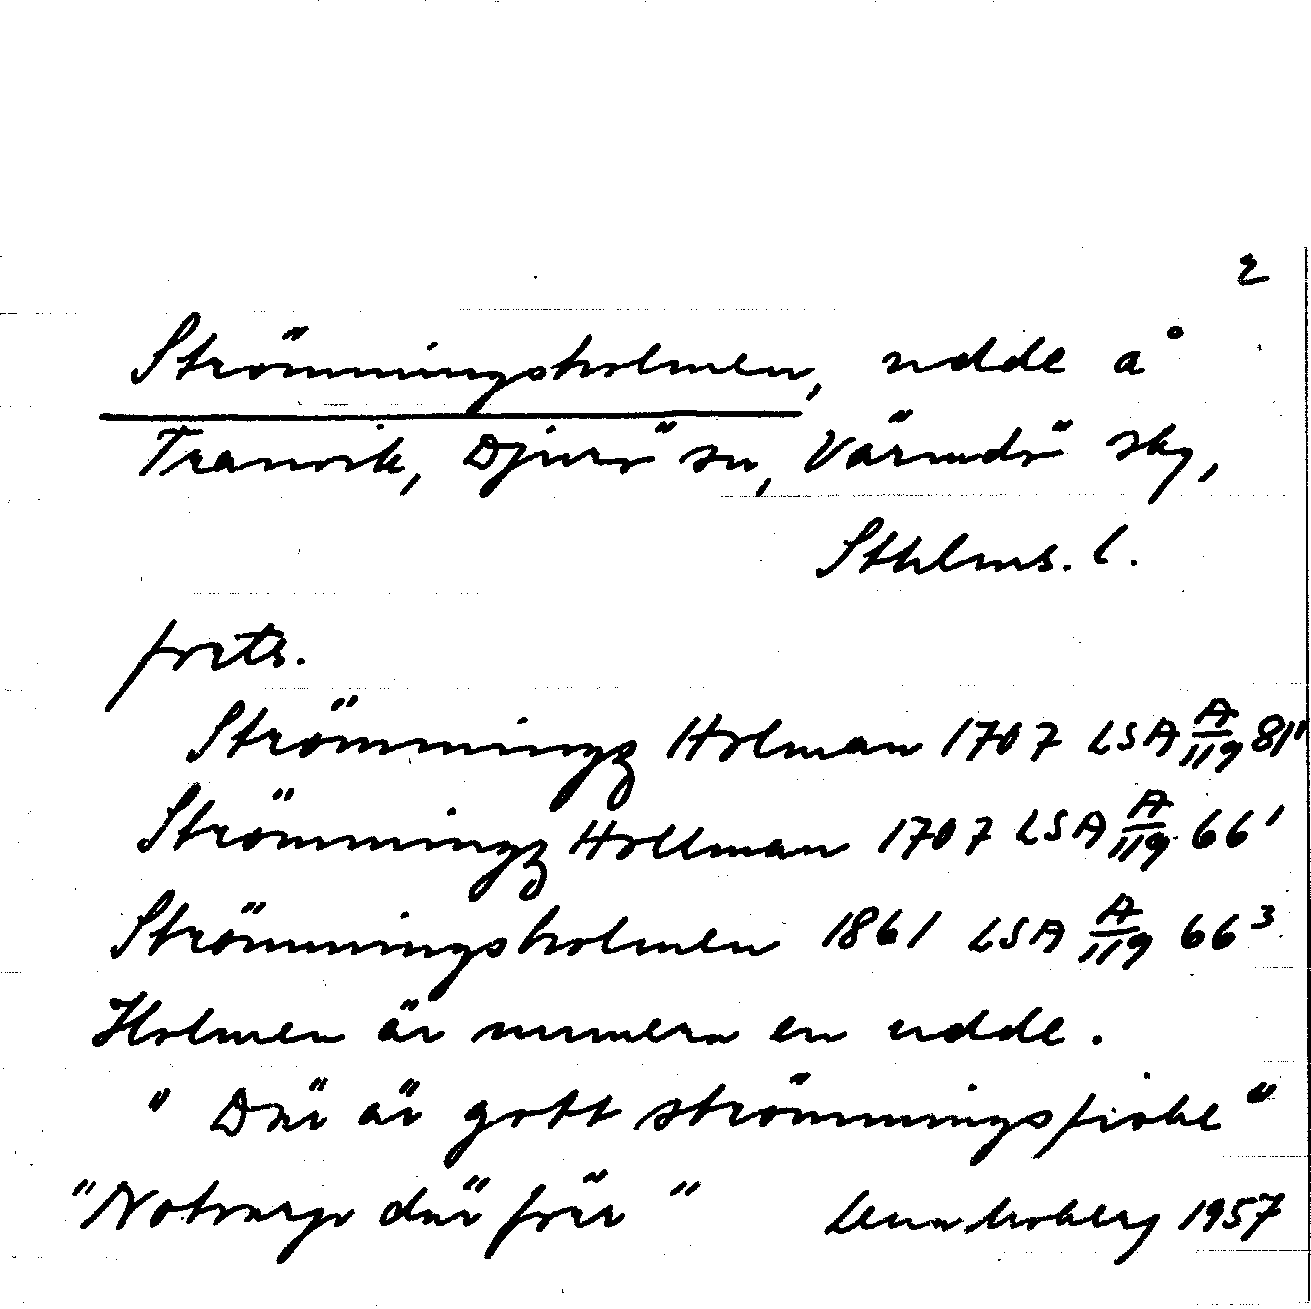 2
Strömmingsholmen, udde å
Tranvik, Djurö sn, Värmdö sky,
Sthlms. l.
forts.
Strömmingz Holman 1707 LSA A/119 81¹
Strömmingz Hollman 1707 LSA A/119 66¹
Strömmingsholmen 1861 LSA A/119 66³
Holmen är numera en udde.
" Där är gott strömmingsfiske "
"Notvarp där förr" Lena Moberg 1957